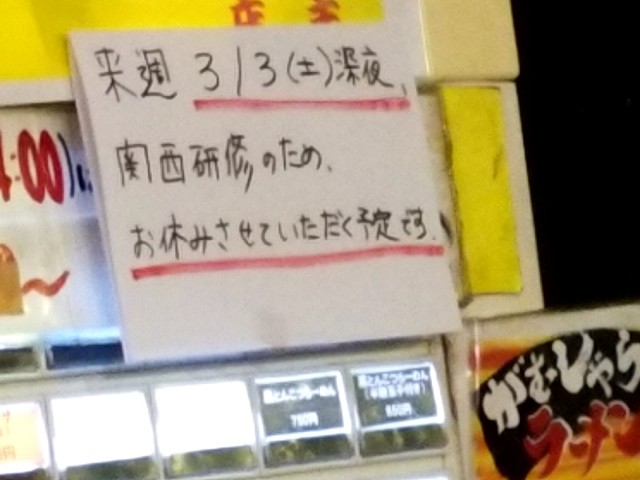 来週 3/3(土)深夜、
関西研修のため、
お休みさせていただく予定です。
:00)
とんこつらーめん
750円
とんこつらーめん
(半熟玉子付き)
850円
がむしゃら
ラーメン